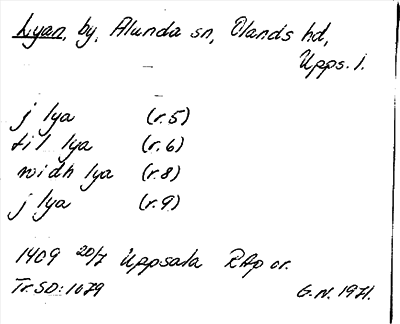 Lyan, by, Alunda sn, Olands hd,
Upps. l.
j lya (r.5)
til lya (r.6)
widh lya (r.8)
j lya (r.9)
1409 20/7 Uppsala RAp or.
Tr. SD: 1079
G.N. 1971.